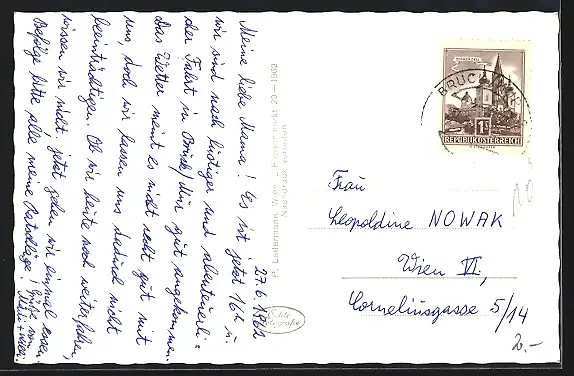 27.6.1962
Meine liebe Mama! Es ist jetzt 16h u.
wir sind nach lustiger und abenteuerli=
cher Fahrt in Bruck/Mur gut angekommen.
Das Wetter meint es nicht recht gut mit
uns, doch wir lassen uns dadurch nicht
beeinträchtigen. Ob wir heute noch weiterfahren,
wissen wir nicht, jetzt gehen wir einmal essen.
Befolge bitte alle meine Ratschläge! Grüße von
P. Ledermann, Wien I, Fleischmarkt 20 — 1962
Nachdruck verboten
Echte
Fotografie
BRUCK
HEIDENREICH
1S
REPUBLIK ÖSTERREICH
Frau
Leopoldine NOWAK
Wien VI,
Corneliusgasse 5/14
2.-